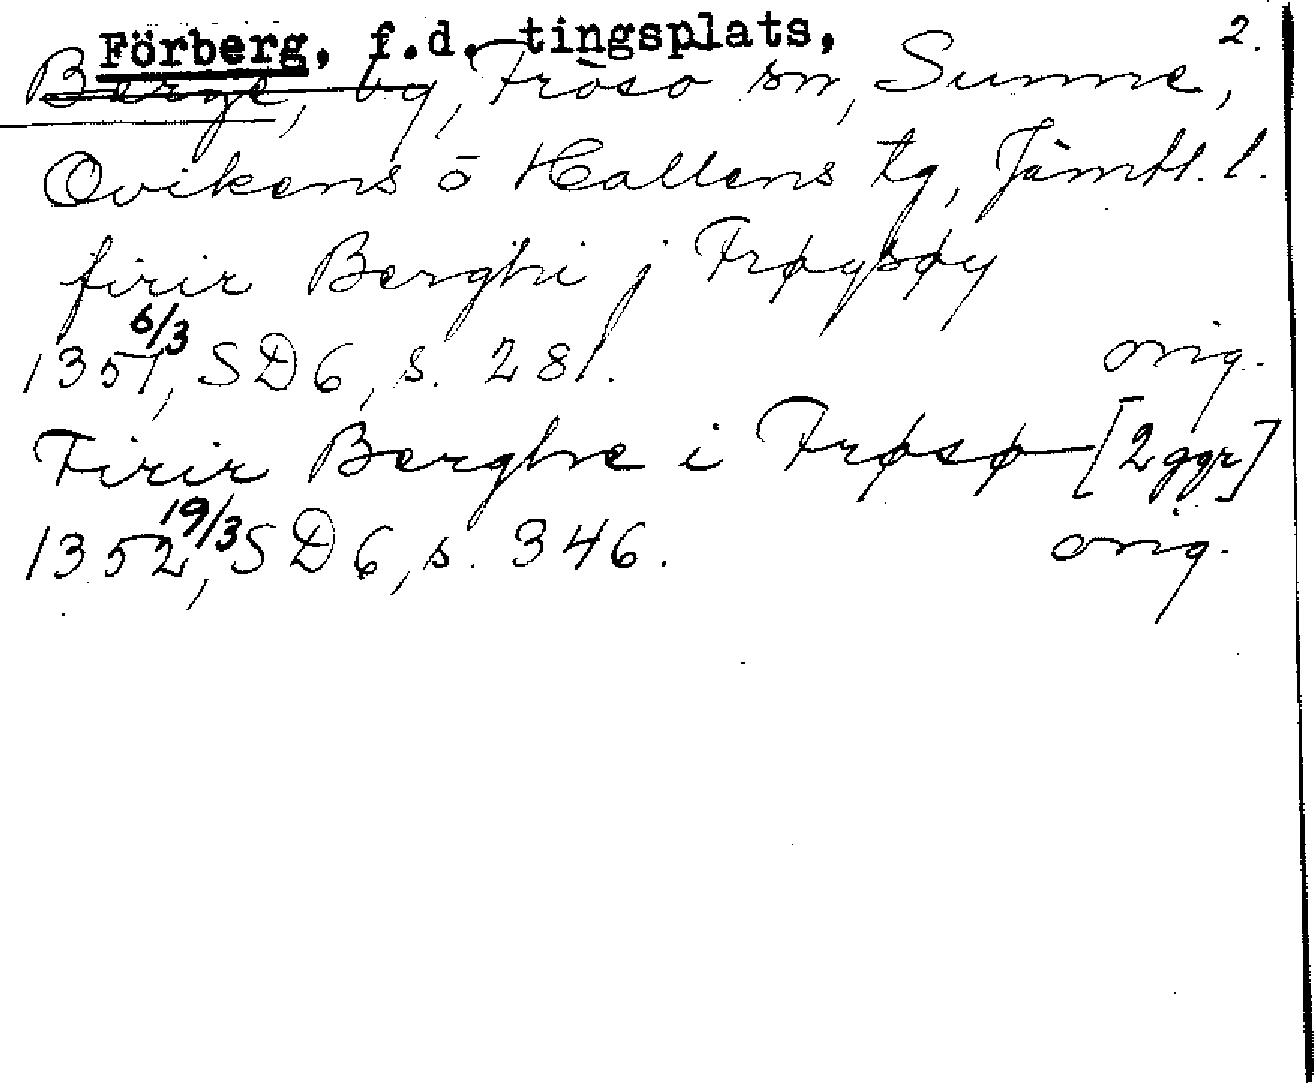 Förberg, f.d. tingsplats, 2.
Berge, by, Frösö sn, Sunne,
Ovikens o Hallens tg, Jämtl. l.
firir Berghi j Frøysøy
1351 6/3, SD 6, s. 281. orig.
Firir Berghe i Frøsø [2 ggr]
1352 19/3, SD 6, s. 346. orig.